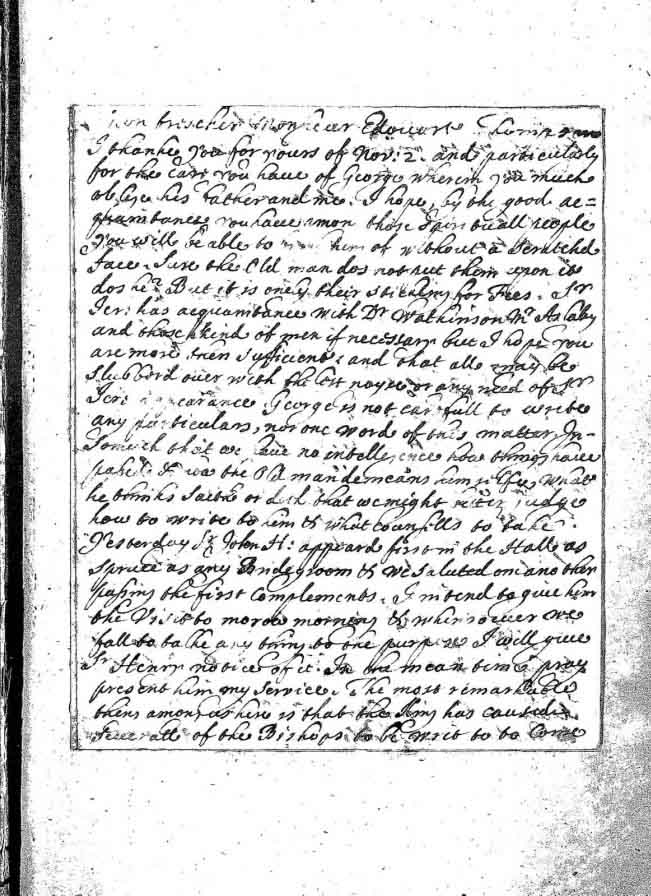 mon trescher Monsieur Edouart
I thanke you for yours of Nov: 2. and particularly
for the care you have of George wherein you much
oblige his father and me. I hope, by the good ac=
quaintance you have amon those Spirituall people
you will be able to him of without a Scratched
face. Sure the Old man dos not put them upon it
dos he? But it is onely their itching for Fees. Sr
Jer: has acquaintance with Dr Watkinson Mr Aslaby
and those kind of men if necessary but I hope you
are more then sufficient: and that all may be
slubberd over with the lest noyse or any need of Sr
Jer: appearance. George is not carefull to write
any particulars, nor one word of this matter, In-
somuch that we have no intelligence how things have
passed & wt the Old man demeans himselfe, what
he thinks saith or doth that we might better judge
how to write to him & what counsills to take.
Yesterday Sr John H: appeard first in the Hall as
Spruce as any Bridegroom & we Saluted one another
passing the first Complements. I intend to give him
the Visit to morow morning & whensoever we
fall to take any thing to the purpose I will give
Sr Henry notice of it. In the mean time pray
present him my Service. The most remarkable
thing amongus here is that the King has caused
severall of the Bishops to be writ to to Come